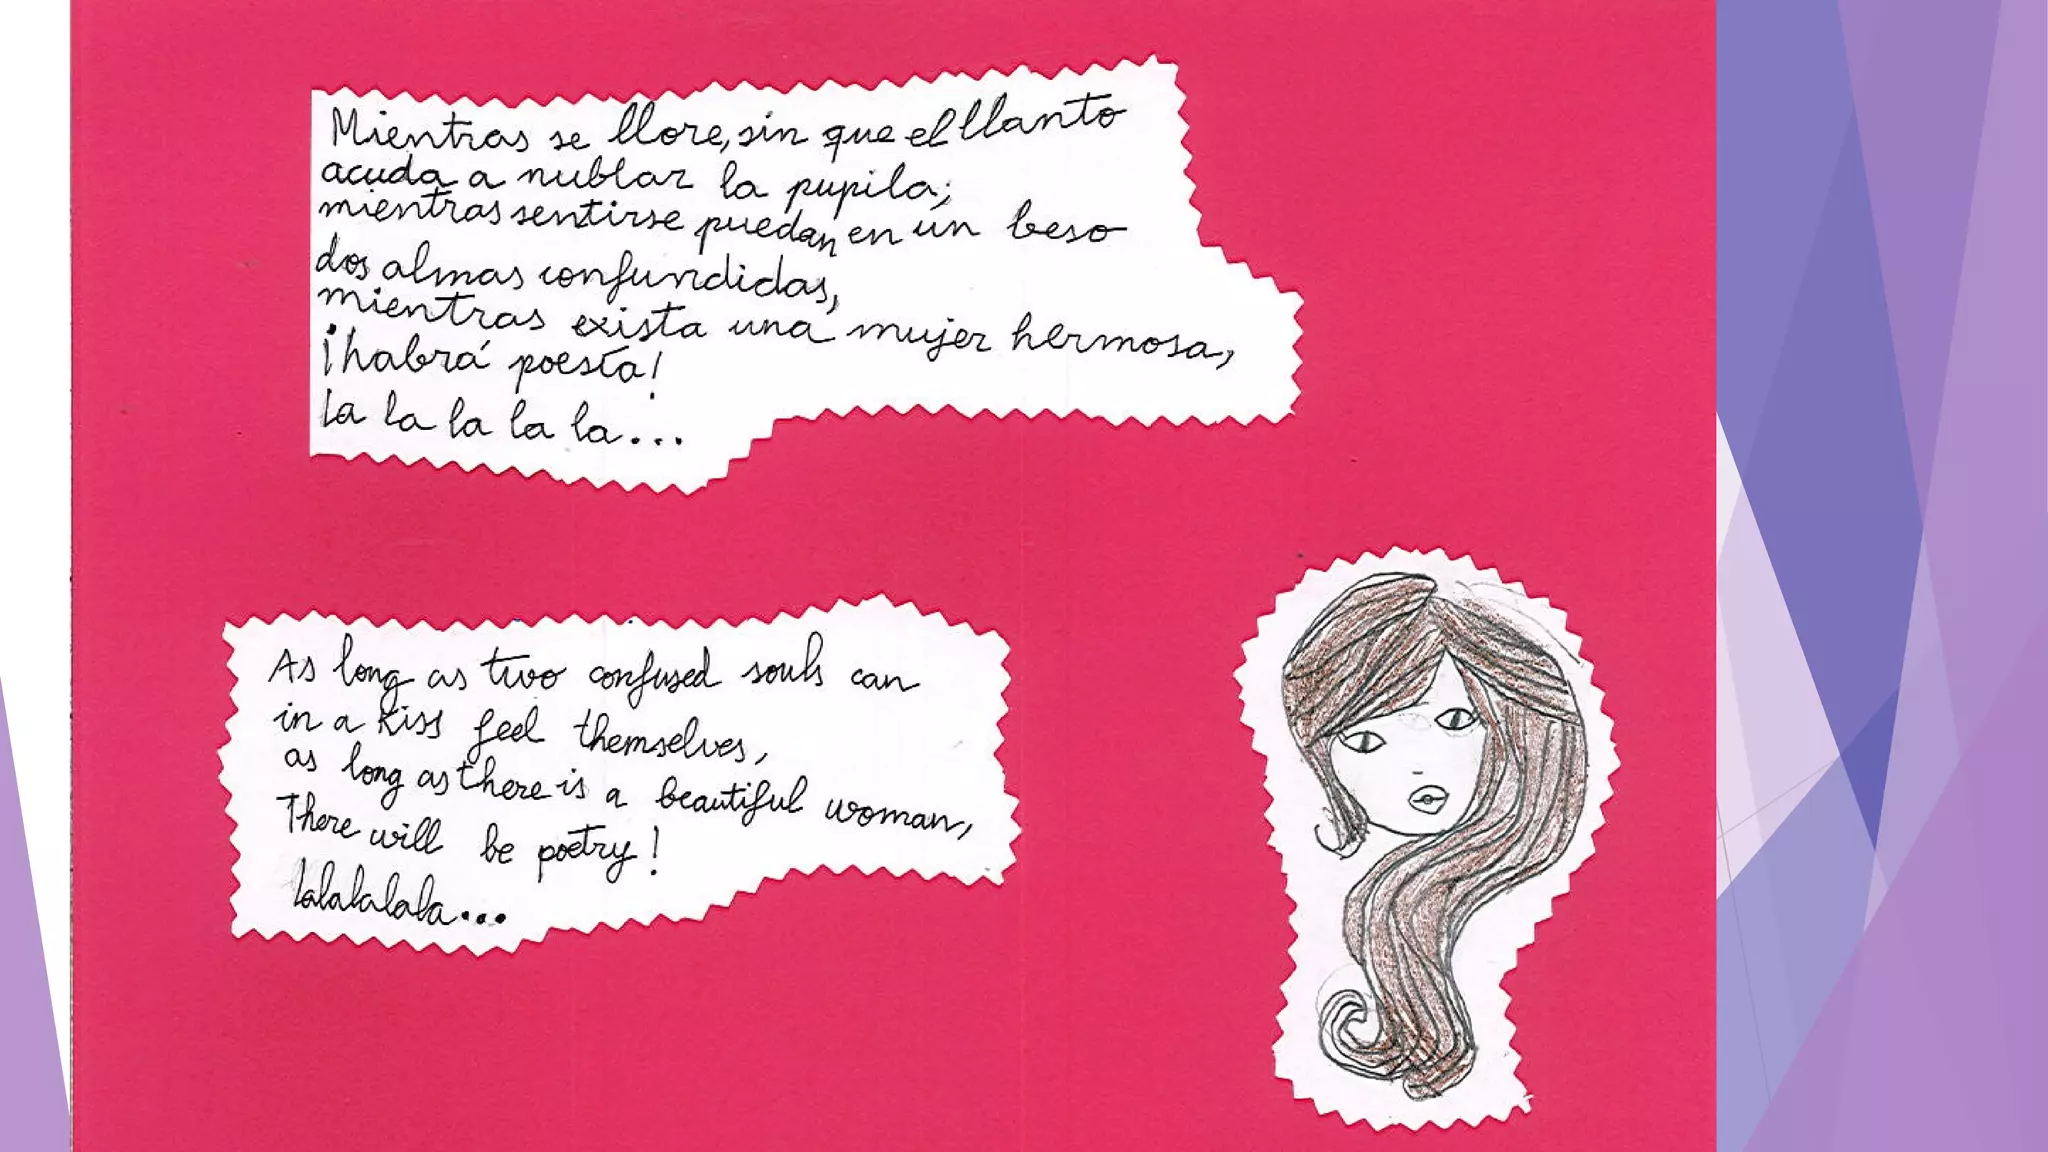 Mientras se llore, sin que el llanto
acuda a nublar la pupila;
mientras sentirse puedan en un beso
dos almas confundidas,
mientras exista una mujer hermosa,
¡habrá poesía!
La la la la la...
As long as two confused souls can
in a kiss feel themselves,
as long as there is a beautiful woman,
There will be poetry!
Lalalalala...